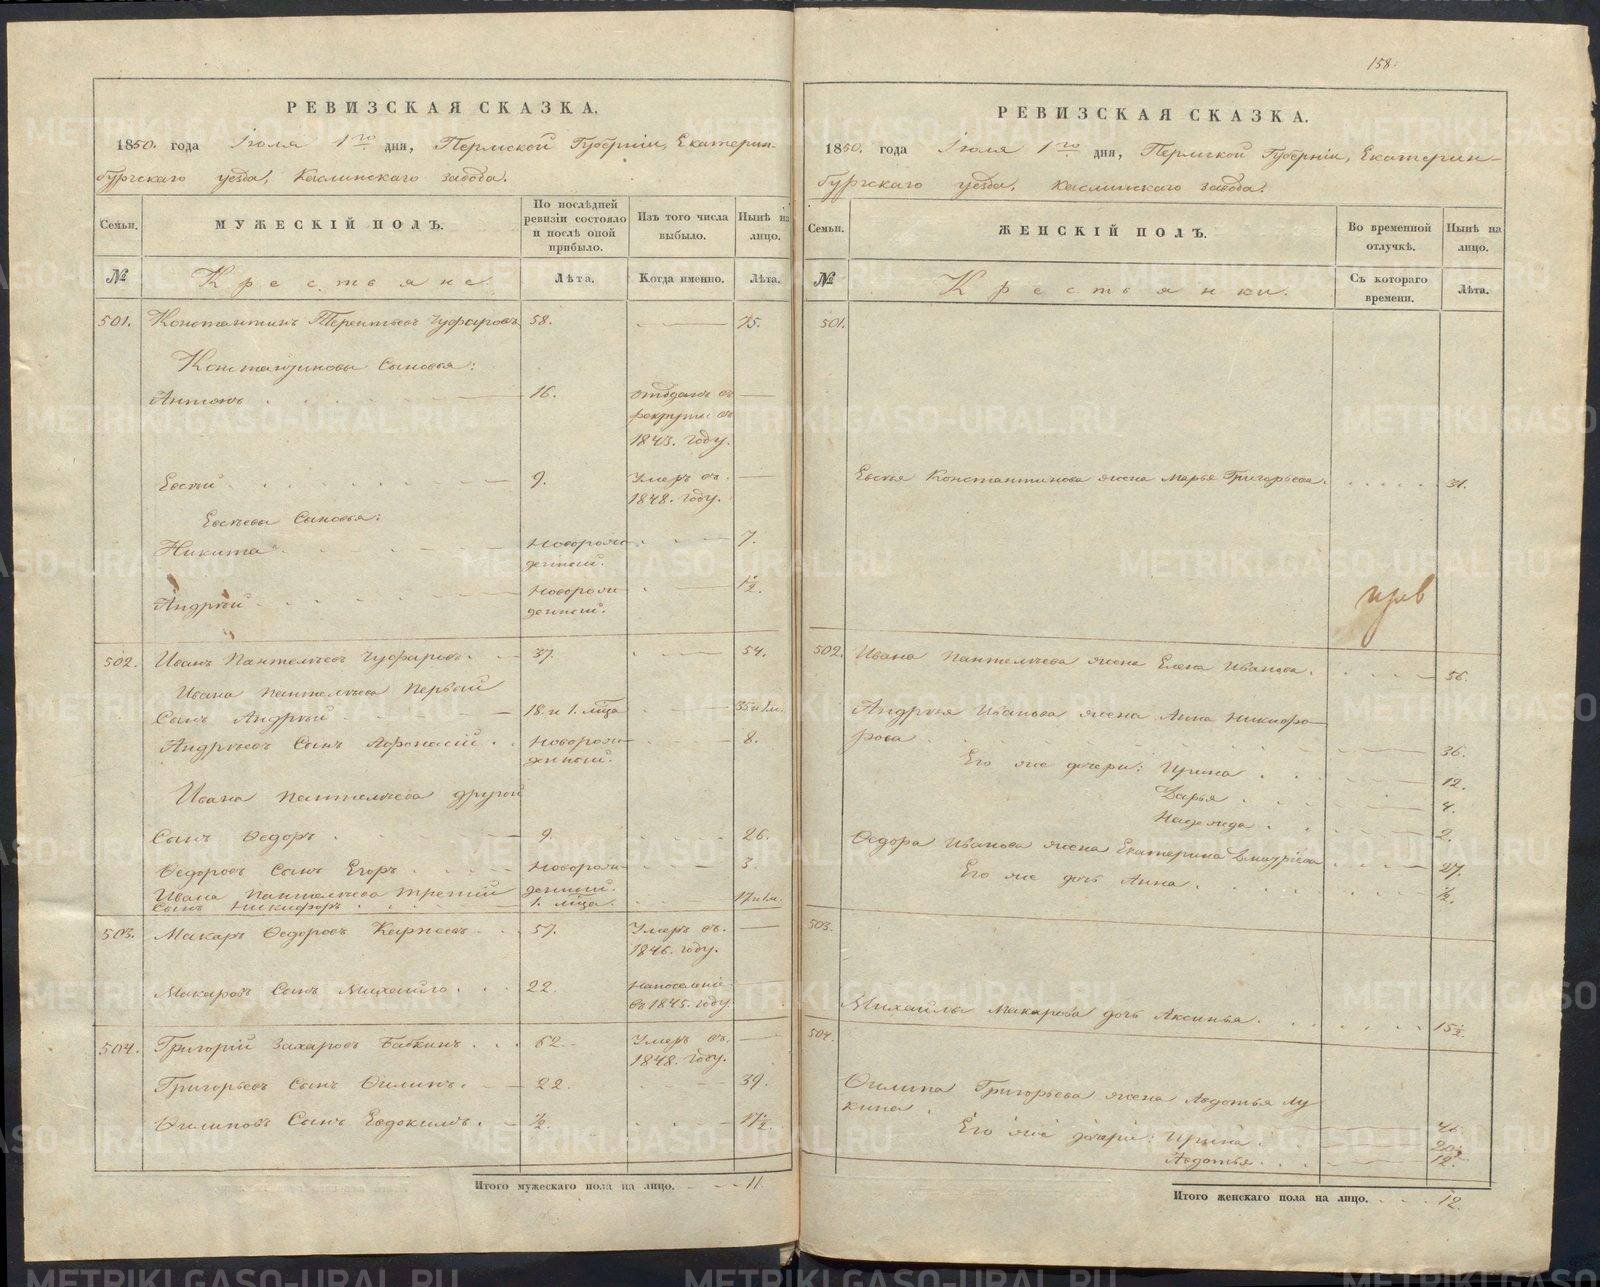 158.
РЕВИЗСКАЯ СКАЗКА.
1850. года Іюля 1го дня, Пермской Губерніи, Екатерин-
бургскаго уезда, Каслинскаго завода.
Семьи.
МУЖЕСКІЙ ПОЛЪ.
По послѣдней ревизіи состояло и послѣ оной прибыло.
Изъ того числа выбыло.
Нынѣ на лицо.
№
Крестьяне.
Лѣта.
Когда именно.
Лѣта.
501. Константинъ Терентьевъ Чуфаровъ 58. 75.
Константиновы Сыновья:
Антонъ 16. отданъ въ
рекруты въ
1843. году.
Евсѣй 9. Умеръ въ
1848. году.
Евсѣевы Сыновья:
Никита Новорож- 7.
денный.
Андрѣй Новорож- 1/2.
денный.
502. Иванъ Пантелѣевъ Чуфаровъ. 37. 54.
Ивана Пантелѣева Первый
Сынъ Андрѣй 18. и 1. мца 35 и 1 м.
Андрѣевъ Сынъ Афонасій Новорож- 8.
денный.
Ивана Пантелѣева другой
Сынъ Ѳедоръ 9. 26.
Ѳедоровъ Сынъ Егоръ Новорож- 3
денный.
Ивана Пантелѣева третій
Сынъ Никифоръ 1. мца. 17 и 1 м.
503. Макаръ Ѳедоровъ 57. Умеръ въ
1846. году.
Макаровъ Сынъ Михайло 22. На поселеніе
въ 1845. году
504. Григорій Захаровъ Бабкинъ 62. Умеръ въ
1848. году.
Григорьевъ Сынъ Филипъ. 22. 39.
Филиповъ Сынъ Евдокимъ 1/2. 17 1/2.
Итого мужескаго пола на лицо. 11
РЕВИЗСКАЯ СКАЗКА.
1850. года Іюля 1го дня, Пермской Губерніи, Екатерин-
бургскаго уезда, Каслинскаго завода.
Семьи.
ЖЕНСКІЙ ПОЛЪ.
Во временной отлучкѣ.
Нынѣ на лицо.
№
Крестьянки.
Съ котораго времени.
Лѣта.
501.
Евсѣя Константинова жена Марья Григорьева. 31.
502. Ивана Пантелѣева жена Елена Иванова. 56.
Андрѣя Иванова жена Анна Никифо-
рова 36.
Его же дочери: Ирина 12.
Дарья 4.
Надежда 2.
Ѳедора Иванова жена Екатерина Дмитріева 27.
Его же дочь Анна. 1/2.
503.
Михайлы Макарова дочь Аксинья. 15 1/2.
504.
Филипа Григорьева жена Авдотья Лу
кина 46.
Его же дочери: Ирина
Авдотья 12.
Итого женскаго пола на лицо. 12.
METRIKI.GASO-URAL.RU